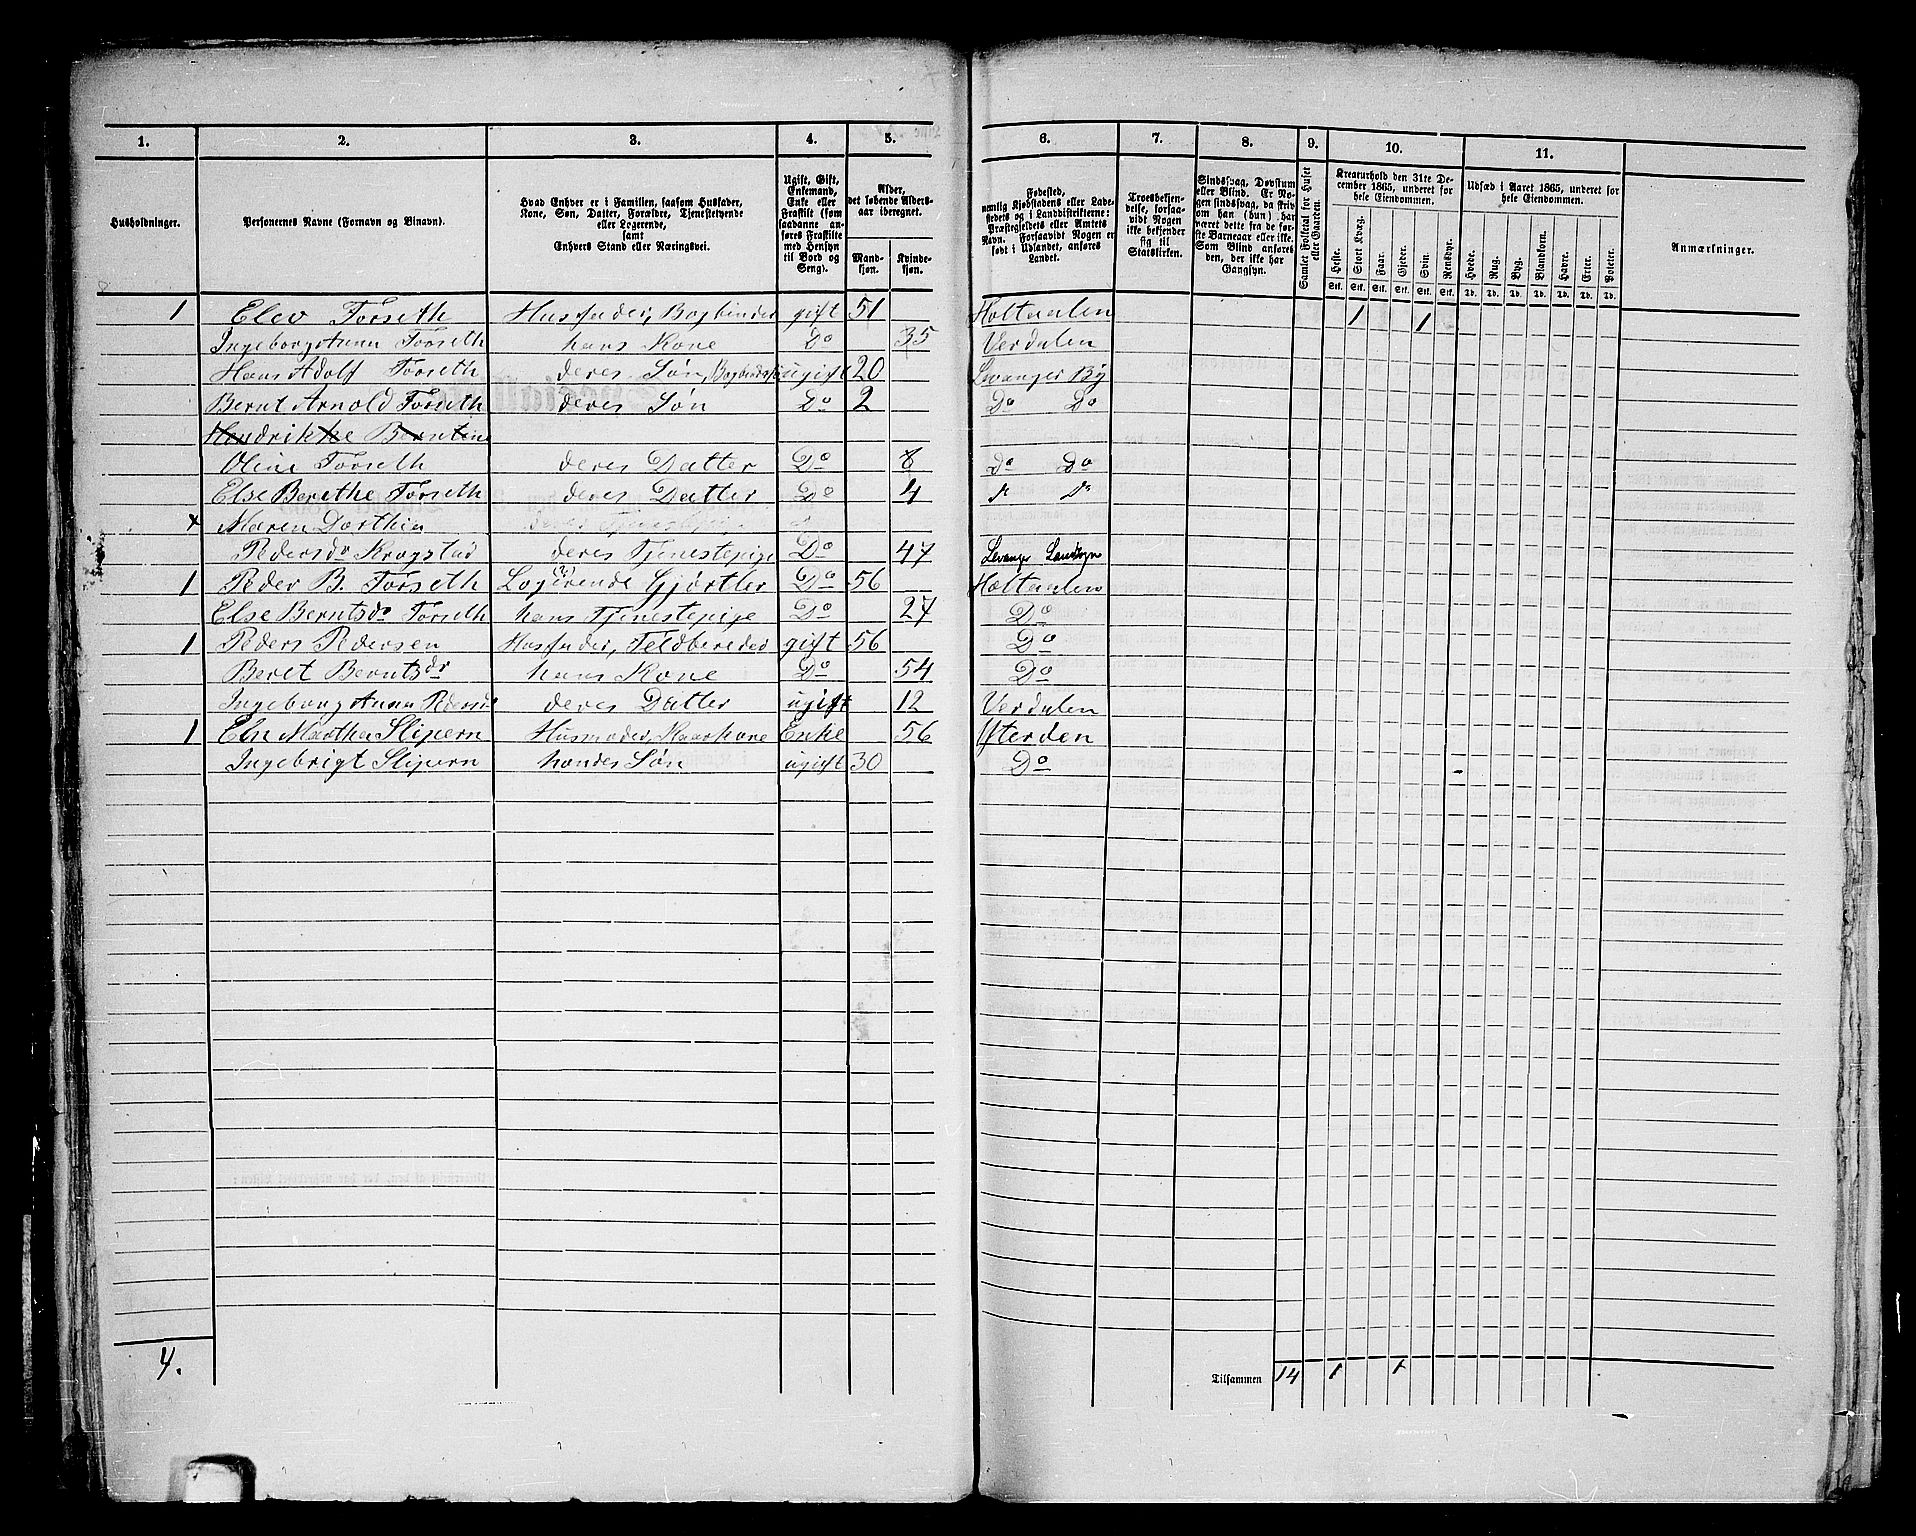 1. 2. 3. 4. 5. 6. 7. 8. 9. 10. 11.
Husholdninger.
Personernes Navne (Fornavn og Binavn).
Hvad Enhver er i Familien, saasom Husfader, Kone, Søn, Datter, Forældre, Tjenestetyende eller Logerende, samt Enhvers Stand eller Næringsvei.
Ugift, Gift, Enkemand, Enke eller Fraskilt (som saadanne anføres Fraskilte med Hensyn til Bord og Seng).
Alder, det løbende Alders-aar iberegnet.
Mandkjøn. Kvindekjøn.
Fødested, nemlig Kjøbstadens eller Ladestedets og i Landdistrikterne: Præstegjeldets eller Amtets Navn. Forsaavidt Nogen er født i Udlandet, anføres Landet.
Troesbekjendelse, forsaavidt Nogen ikke bekjender sig til Statskirken.
Sindssvag, Døvstum eller Blind. Er Nogen sindssvag, da skriv om han (hun) har været dette fra de første Barneaar eller ikke. Som Blind anføres den, der ikke har Gangsyn.
Samlet Folketal for Huset eller Gaarden.
Kreaturhold den 31te December 1865, underet for hele Eiendommen.
Heste. Stort Kvæg. Faar. Gjeder. Svin. Rensdyr.
Stk. Stk. Stk. Stk. Stk. Stk.
Udsæd i Aaret 1865, underet for hele Eiendommen.
Hvede. Rug. Byg. Blandkorn. Havre. Erter. Poteter.
Td. Td. Td. Td. Td. Td. Td.
Anmærkninger.
1 Elev Forseth Husfader, Bogbinder gift 51 Holtaalen 1 1
Ingeborg Anna Forseth hans Kone Do 35 Verdalen
Hans Adolf Forseth deres Søn, ugift 20 Levanger By
Bernt Arnold Forseth deres Søn Do 2 Do Do
Hendrikke Berntine
Oline Forseth deres Datter Do 8 Do Do
Else Berethe Forseth deres Datter Do 4 Do
x Maren Dorthea deres Tjenestepige
Pedersdr Krogstad deres Tjenestepige Do 47 Levanger Landsogn
1 Peder B. Forseth Logerende Gjørtler Do 56 Holtaalen
Else Berntsdr Forseth hans Tjenestepige Do 27 Do
1 Peders Pedersen Husfader, Feldbereder gift 56 Do
Beret Berntsdr hans Kone Do 54 Do
Ingeborg Anna Pedersd deres Datter ugift 12 Verdalen
1 Eln Martha Slipern Husmoder, Enke 56 Ytterøen
Ingebrigt Slipern hendes Søn ugift 30 Do
4. Tilsammen 14 1 1